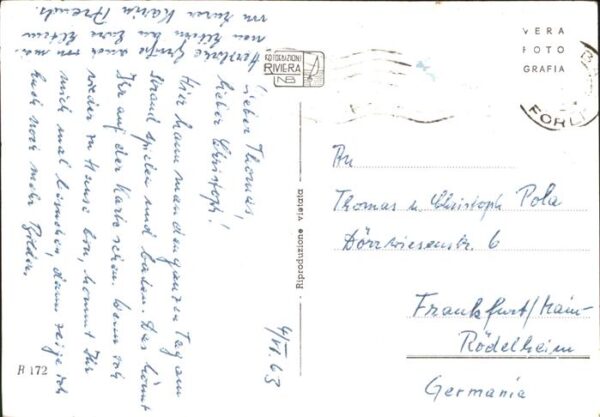 4/VI 63
Lieber Thomas,
lieber Christoph!
Hier kann man den ganzen Tag am
Strand spielen und baden. Das könnt
Ihr auf der Karte sehen. Wenn ich
wieder zu Hause bin, kommt Ihr
mich mal besuchen, dann zeige ich
Euch noch mehr Bilder.
Herzliche Grüße auch von
meinen Eltern an Eure Eltern
von Eurer Karin
FOTOEDIZIONI
RIVIERA
NB
VERA
FOTO
GRAFIA
FORLI
An
Thomas u. Christoph Pola
Dörrwiesenstr. 6
Frankfurt/Main-
Rödelheim
Germania
- Riproduzione vietata -
R 172